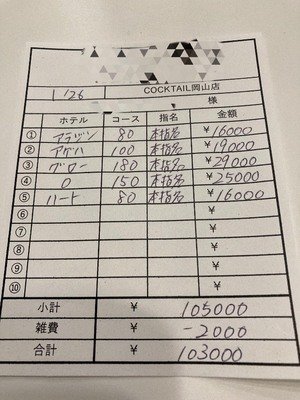 COCKTAIL岡山店
1/26 様
ホテル コース 指名 金額
① アラジン 80 本指名 ¥16000
② アケハ 100 本指名 ¥19000
③ グロー 180 本指名 ¥29000
④ O 150 本指名 ¥25000
⑤ ハート 80 本指名 ¥16000
⑥ ¥
⑦ ¥
⑧ ¥
⑨ ¥
⑩ ¥
小計 ¥ 105000
雑費 ¥ -2000
合計 ¥ 103000